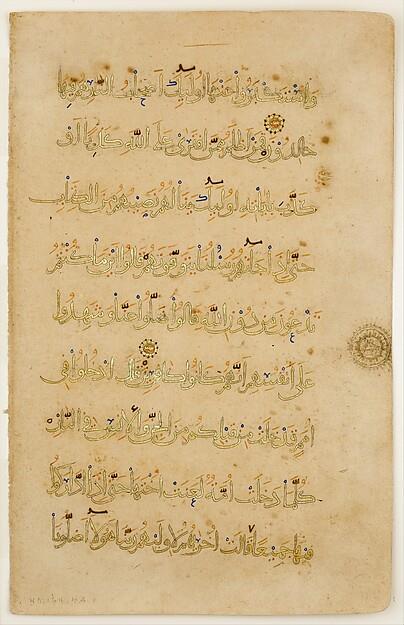 وَاسْتَكْبَرُوا عَنْهَا أُولَئِكَ أَصْحَابُ النَّارِ هُمْ فِيهَا
خَالِدُونَ فَمَنْ أَظْلَمُ مِمَّنِ افْتَرَى عَلَى اللَّهِ كَذِبًا أَوْ
كَذَّبَ بِآيَاتِهِ أُولَئِكَ يَنَالُهُمْ نَصِيبُهُمْ مِنَ الْكِتَابِ
حَتَّى إِذَا جَاءَتْهُمْ رُسُلُنَا يَتَوَفَّوْنَهُمْ قَالُوا أَيْنَ مَا كُنْتُمْ
تَدْعُونَ مِنْ دُونِ اللَّهِ قَالُوا ضَلُّوا عَنَّا وَشَهِدُوا
عَلَى أَنْفُسِهِمْ أَنَّهُمْ كَانُوا كَافِرِينَ قَالَ ادْخُلُوا فِي
أُمَمٍ قَدْ خَلَتْ مِنْ قَبْلِكُمْ مِنَ الْجِنِّ وَالْإِنْسِ فِي النَّارِ
كُلَّمَا دَخَلَتْ أُمَّةٌ لَعَنَتْ أُخْتَهَا حَتَّى إِذَا ادَّارَكُوا
فِيهَا جَمِيعًا قَالَتْ أُخْرَاهُمْ لِأُولَاهُمْ رَبَّنَا هَؤُلَاءِ أَضَلُّونَا